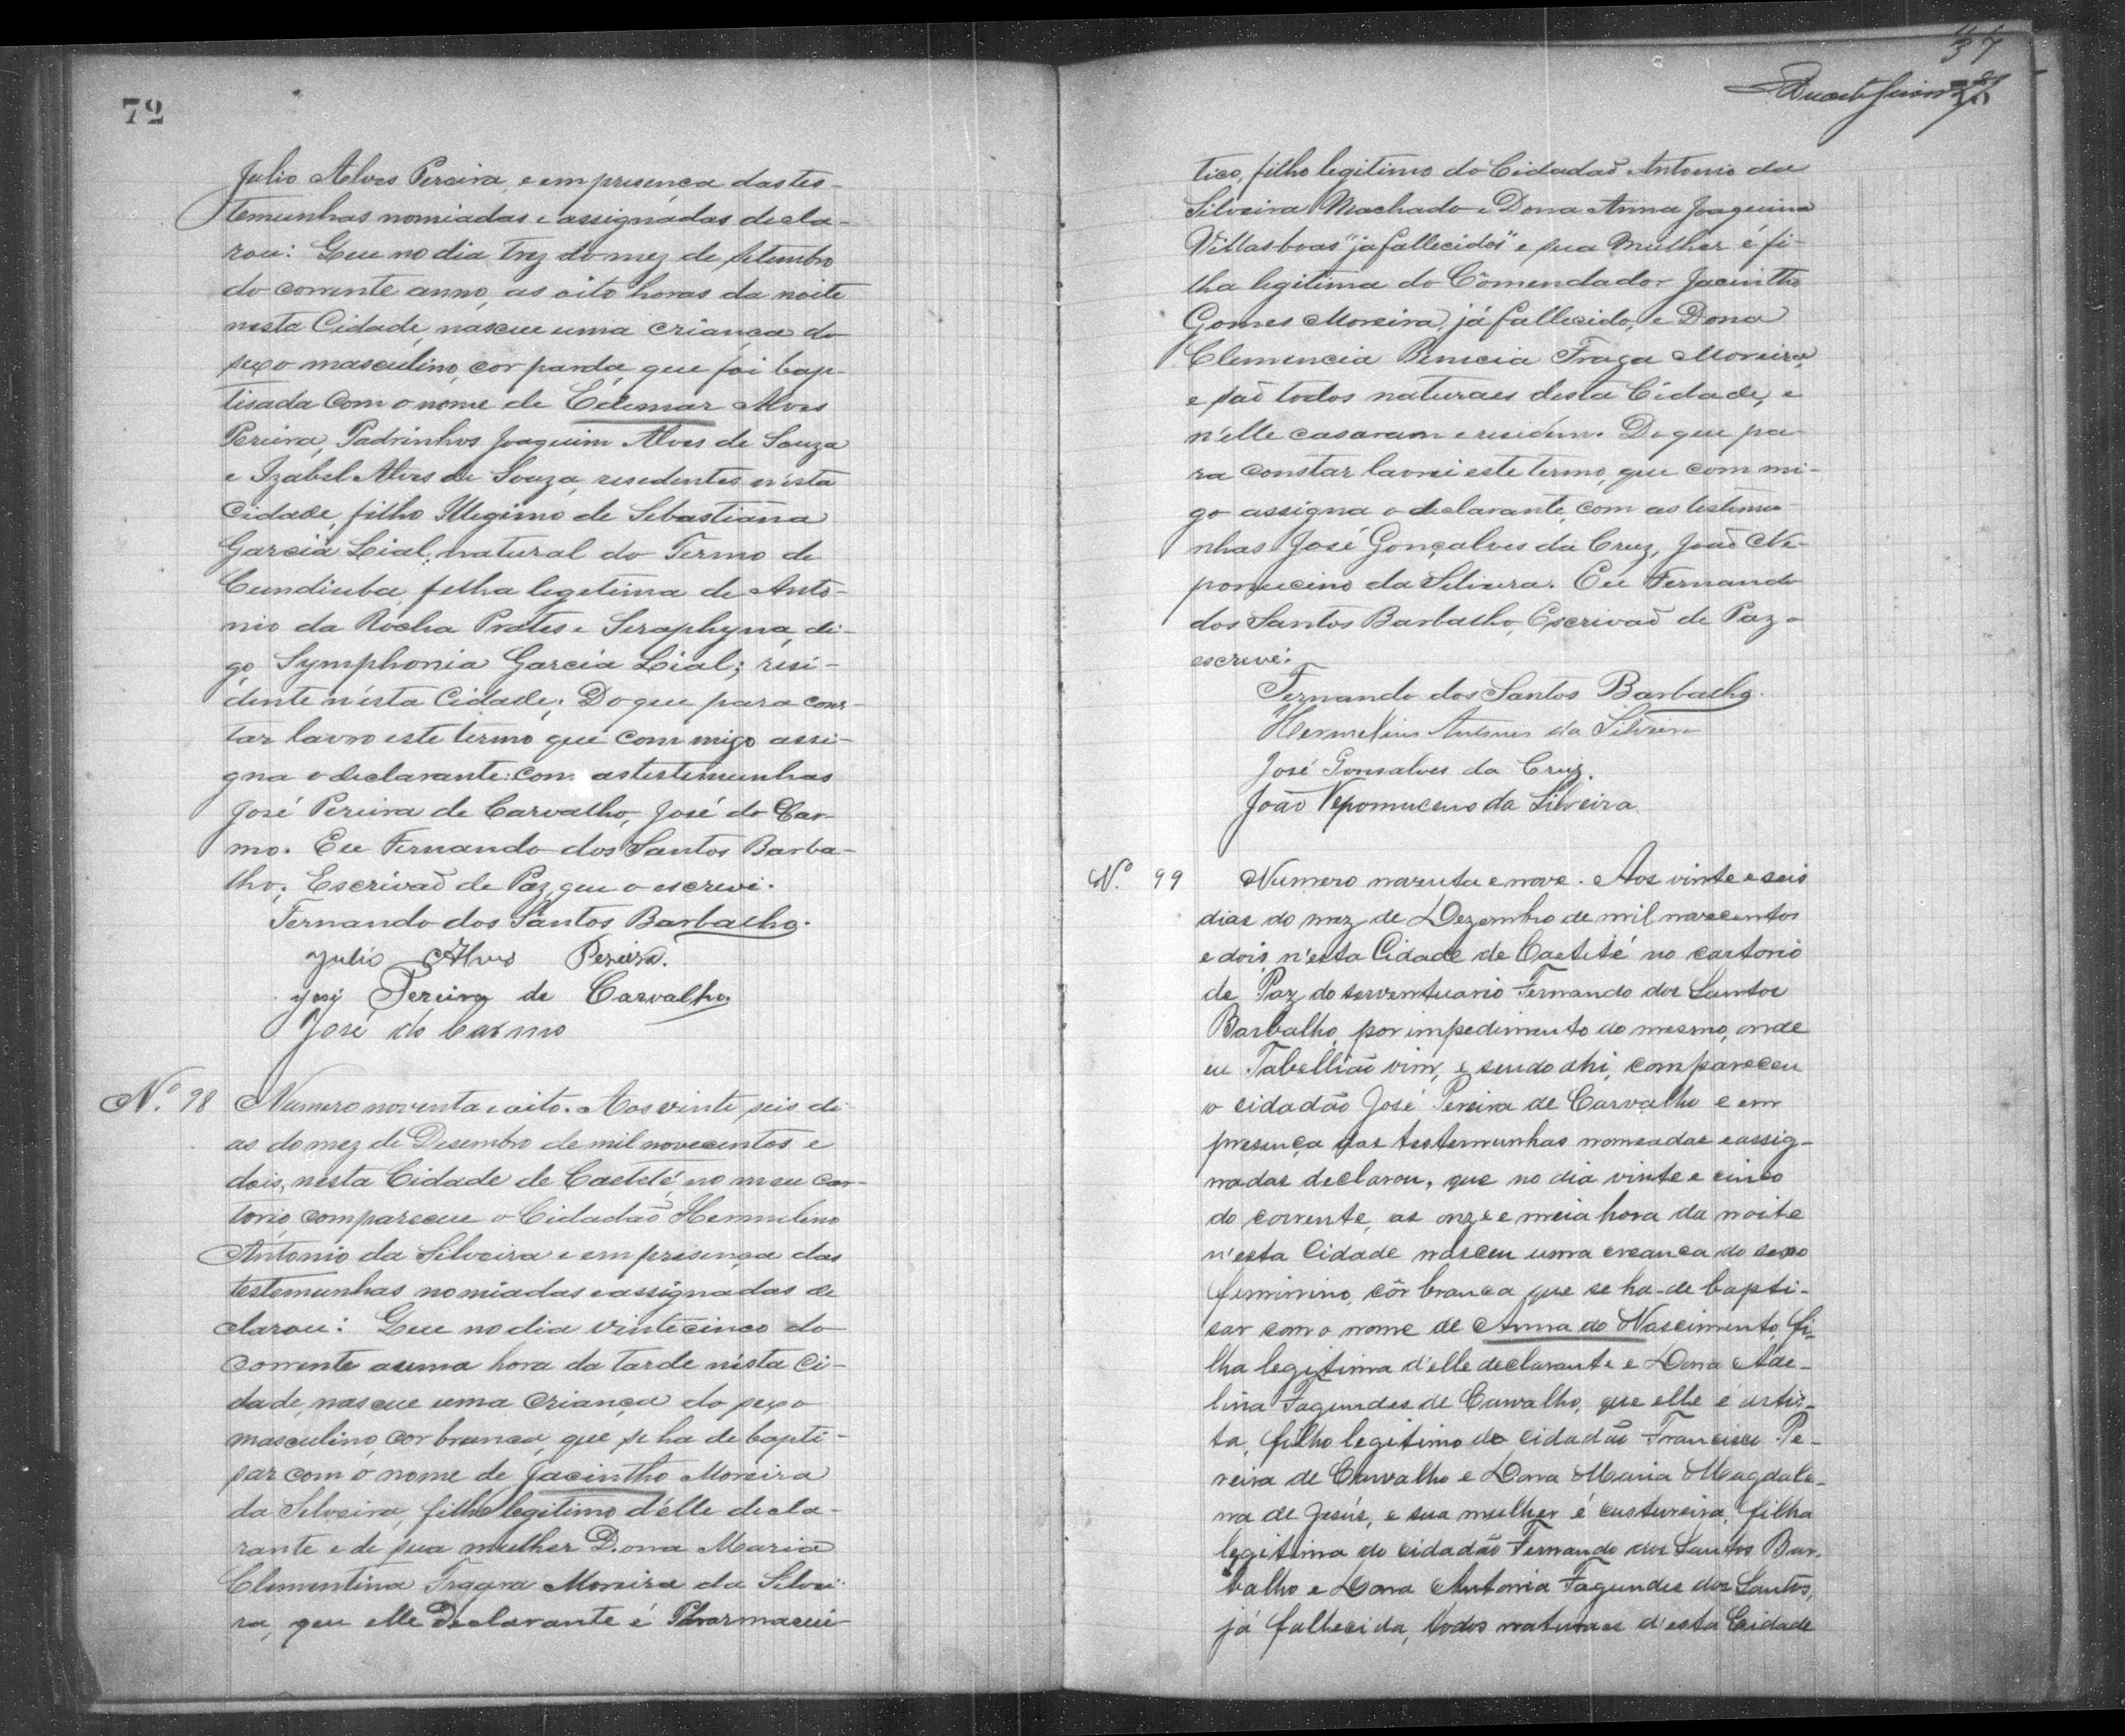 72
Julio Alves Pereira, e em presença das tes-
temunhas nomiadas e assignadas decla-
rou: Que no dia trez do mez de Setembro
do corrente anno, as oito horas da noite
nesta Cidade, nasceu uma criança do
sexo masculino, cor parda, que foi bap-
tisada com o nome de Edemar Alves
Pereira, Padrinhos Joaquim Alves de Souza
e Izabel Alves de Souza, resedentes n'esta
Cidade, filho Illegimo de Sebastiana
Garcia Lial, natural do Termo de
Cundiuba, felha legetima de Anto-
nio da Rocha Prates e Seraphyna, di-
go Symphonia Garcia Lial; resi-
dente n'esta Cidade; Do que para cons-
tar lavro este termo que com migo assi-
gna o declarante: com as testemunhas
José Pereira de Carvalho, José do Car-
mo. Eu Fernando dos Santos Barba-
lho, Escrivaõ de Paz, que o escrevi.
Fernando dos Santos Barbalho.
Julio Alves Pereira.
José Pereira de Carvalho
José do Carmo
Nº. 98 Numero noventa e oito. Aos vinte seis di-
as do mez de Desembro de mil novecentos e
dois, nesta Cidade de Caeteté, no meu car-
torio, compareceu o Cidadaõ Hermelino
Antonio da Silveira e em prisença das
testemunhas nomiadas e assignadas de
clarou: Que no dia vinte cinco do
corrente a uma hora da tarde nésta Ci-
dade, nasceu uma criança do sexo
masculino, cor branca, que se ha de bapti-
sar com o nome de Jacintho Moreira
da Silveira, filho legitimo d'elle decla-
rante e de sua mulher Dona Maria
Clementina Fragra Moreira da Silvei-
ra, que elle Declarante é Pharmaceu-
37
tico, filho legitimo do Cidadaõ Antonio da
Silveira Machado e Dona Anna Joaquina
Villasboas "ja fallecidos" e sua Mulher é fi-
lha legitima do Comendador Jacintho
Gomes Moreira, já fallecido, e Dona
Clemencia Benicia Fraga Moreira,
e saõ todos naturaes desta Cidade, e
n'elle casaram e residem. Do que pa-
ra constar lavrei este termo, que com mi-
go assigna o declarante, com as testemu-
nhas José Gonçalves da Cruz, Joaõ Ne-
pomucino da Silviera. Eu Fernando
dos Santos Barbalho, Escrivaõ de Paz o
escrevi.
Fernando dos Santos Barbalho.
Hermelino Antonio da Silveira
José Gonsalves da Cruz.
João Nepomuceno da Silveira.
Nº. 99 Numero noventa e nove. Aos vinte e seis
dias do mez de Dezembro de mil novecentos
e dois, n'esta Cidade de Caeteté no cartorio
de Paz do serventuario Fernando dos Santos
Barbalho, por impedimento do mesmo, onde
eu Tabellião vim, e sendo ahi, compareceu
o cidadão José Pereira de Carvalho e em
presença das testemunhas nomeadas e assig-
nadas declarou, que no dia vinte e cinco
do corrente, as onze e meia hora da noite
n'esta Cidade nasceu uma creança do sexo
feminino, côr branca que se ha-de bapti-
sar com o nome de Anna do Nascimento, fi-
lha legitima d'elle declarante e Dona Ade-
lina Fagundes de Carvalho, que elle é artis-
ta, filho legitimo do cidadão Francisco Pe-
reira de Carvalho e Dona Maria Magdale-
na de Jesús, e sua mulher é custureira, filha
legitima do cidadão Fernando dos Santos Bar-
balho e Dona Antonia Fagundes dos Santos,
já fallecida, todos naturaes d'esta Cidade